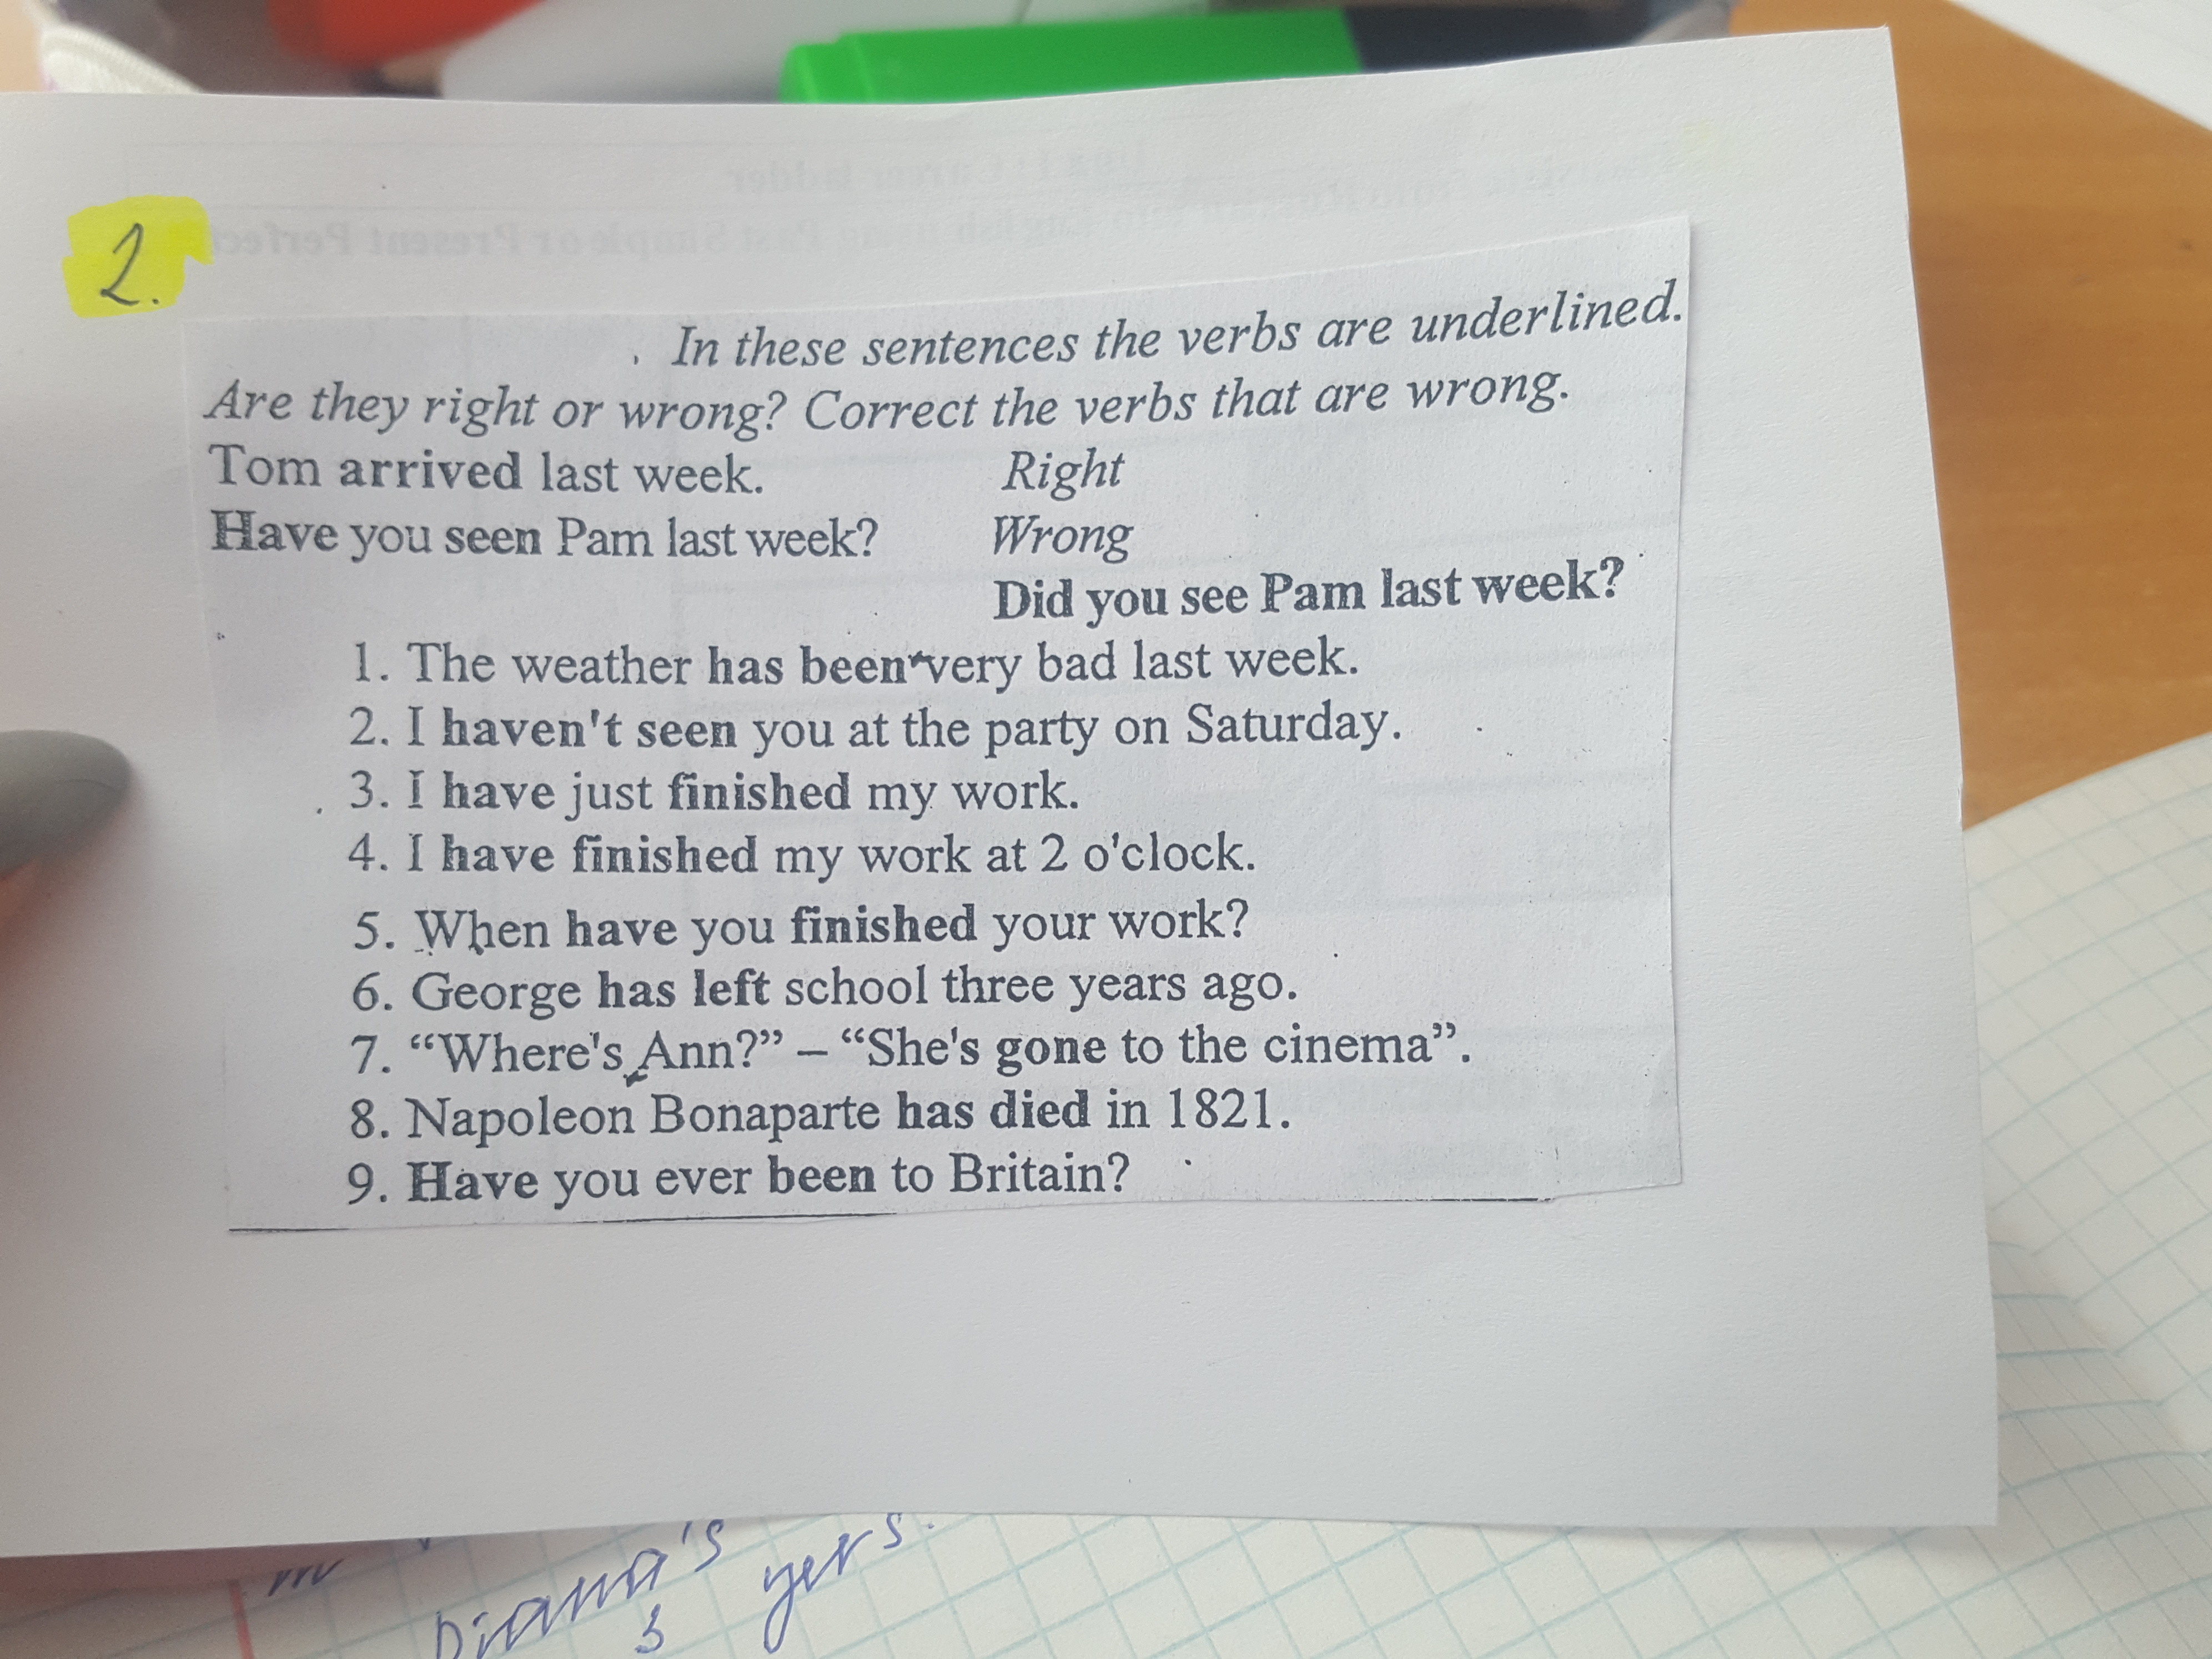 2.
In these sentences the verbs are underlined.
Are they right or wrong? Correct the verbs that are wrong.
Tom arrived last week. Right
Have you seen Pam last week? Wrong
Did you see Pam last week?
1. The weather has been very bad last week.
2. I haven't seen you at the party on Saturday.
3. I have just finished my work.
4. I have finished my work at 2 o'clock.
5. When have you finished your work?
6. George has left school three years ago.
7. “Where's Ann?” – “She's gone to the cinema”.
8. Napoleon Bonaparte has died in 1821.
9. Have you ever been to Britain?
Diama's yers.
3